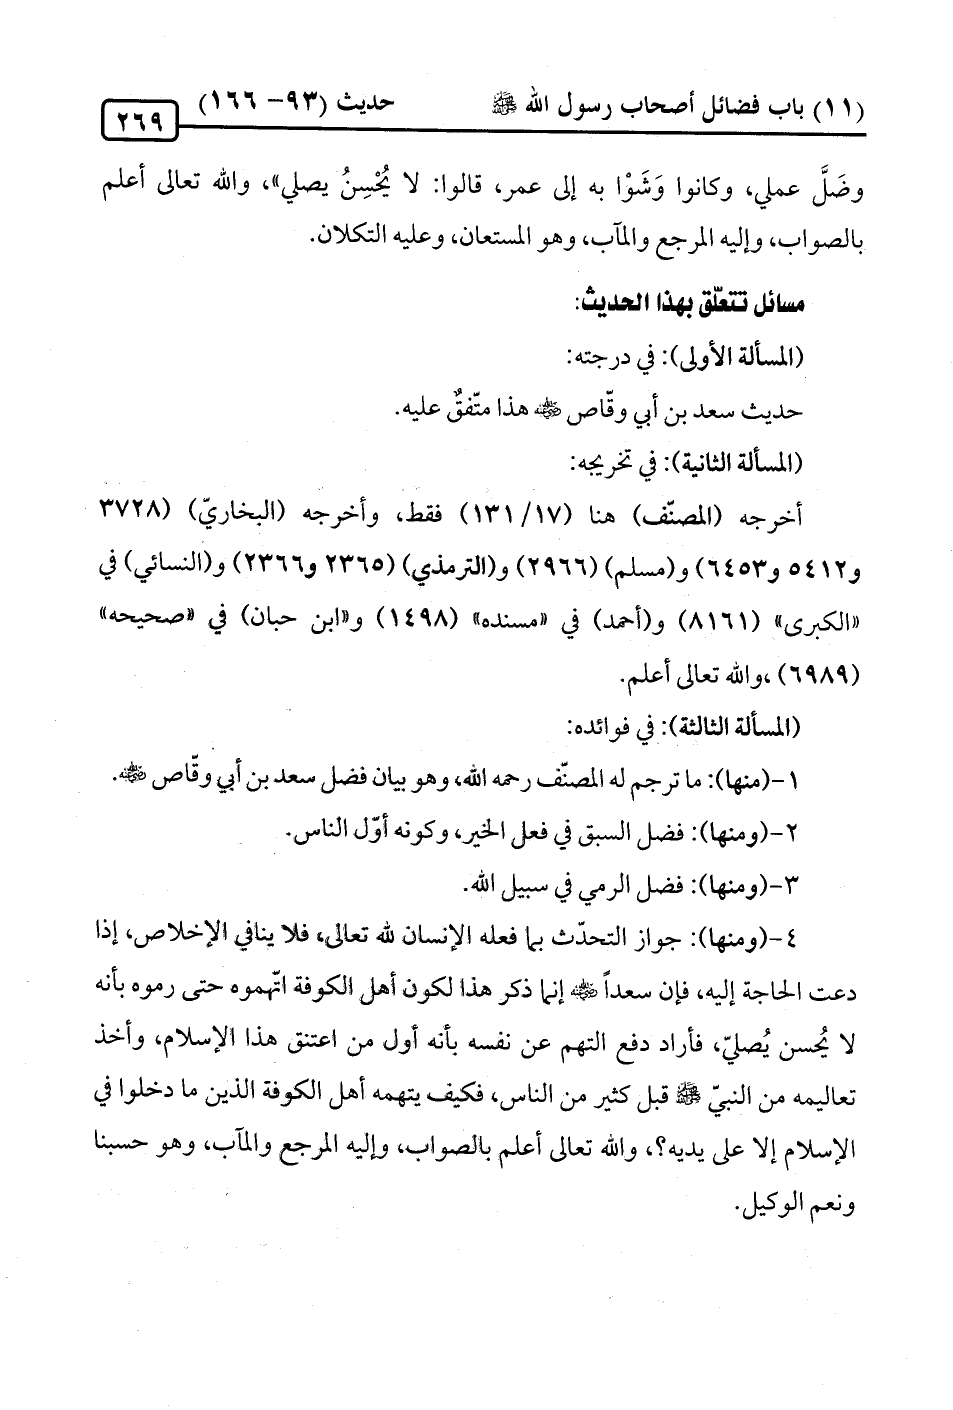 (١١) باب فضائل أصحاب رسول الله ﷺ حديث (٩٣- ١٦٦)
٢٦٩
وضَلَّ عملي، وكانوا وَشَوْا به إلى عمر، قالوا: لا يُحْسِنُ يصلي»، والله تعالى أعلم
بالصواب، وإليه المرجع والمآب، وهو المستعان، وعليه التكلان.
مسائل تتعلّق بهذا الحديث:
(المسألة الأولى): في درجته:
حديث سعد بن أبي وقّاص رضي الله عنه هذا متّفقٌ عليه.
(المسألة الثانية): في تخريجه:
أخرجه (المصنّف) هنا (١٣١/١٧) فقط، وأخرجه (البخاريّ) (٣٧٢٨
و٥٤١٢ و٦٤٥٣) و(مسلم) (٢٩٦٦) و(الترمذي) (٢٣٦٥ و٢٣٦٦) و(النسائي) في
«الكبرى» (٨١٦١) و(أحمد) في «مسنده» (١٤٩٨) و«ابن حبان) في «صحيحه»
(٦٩٨٩) ،والله تعالى أعلم.
(المسألة الثالثة): في فوائده:
١-(منها): ما ترجم له المصنّف رحمه الله، وهو بيان فضل سعد بن أبي وقّاص رضي الله عنه.
٢-(ومنها): فضل السبق في فعل الخير، وكونه أوّل الناس.
٣-(ومنها): فضل الرمي في سبيل الله.
٤-(ومنها): جواز التحدّث بما فعله الإنسان لله تعالى، فلا ينافي الإخلاص، إذا
دعت الحاجة إليه، فإن سعداً رضي الله عنه إنما ذكر هذا لكون أهل الكوفة اتّهموه حتى رموه بأنه
لا يُحسن يُصليّ، فأراد دفع التهم عن نفسه بأنه أول من اعتنق هذا الإسلام، وأخذ
تعاليمه من النبيّ ﷺ قبل كثير من الناس، فكيف يتهمه أهل الكوفة الذين ما دخلوا في
الإسلام إلا على يديه؟، والله تعالى أعلم بالصواب، وإليه المرجع والمآب، وهو حسبنا
ونعم الوكيل.